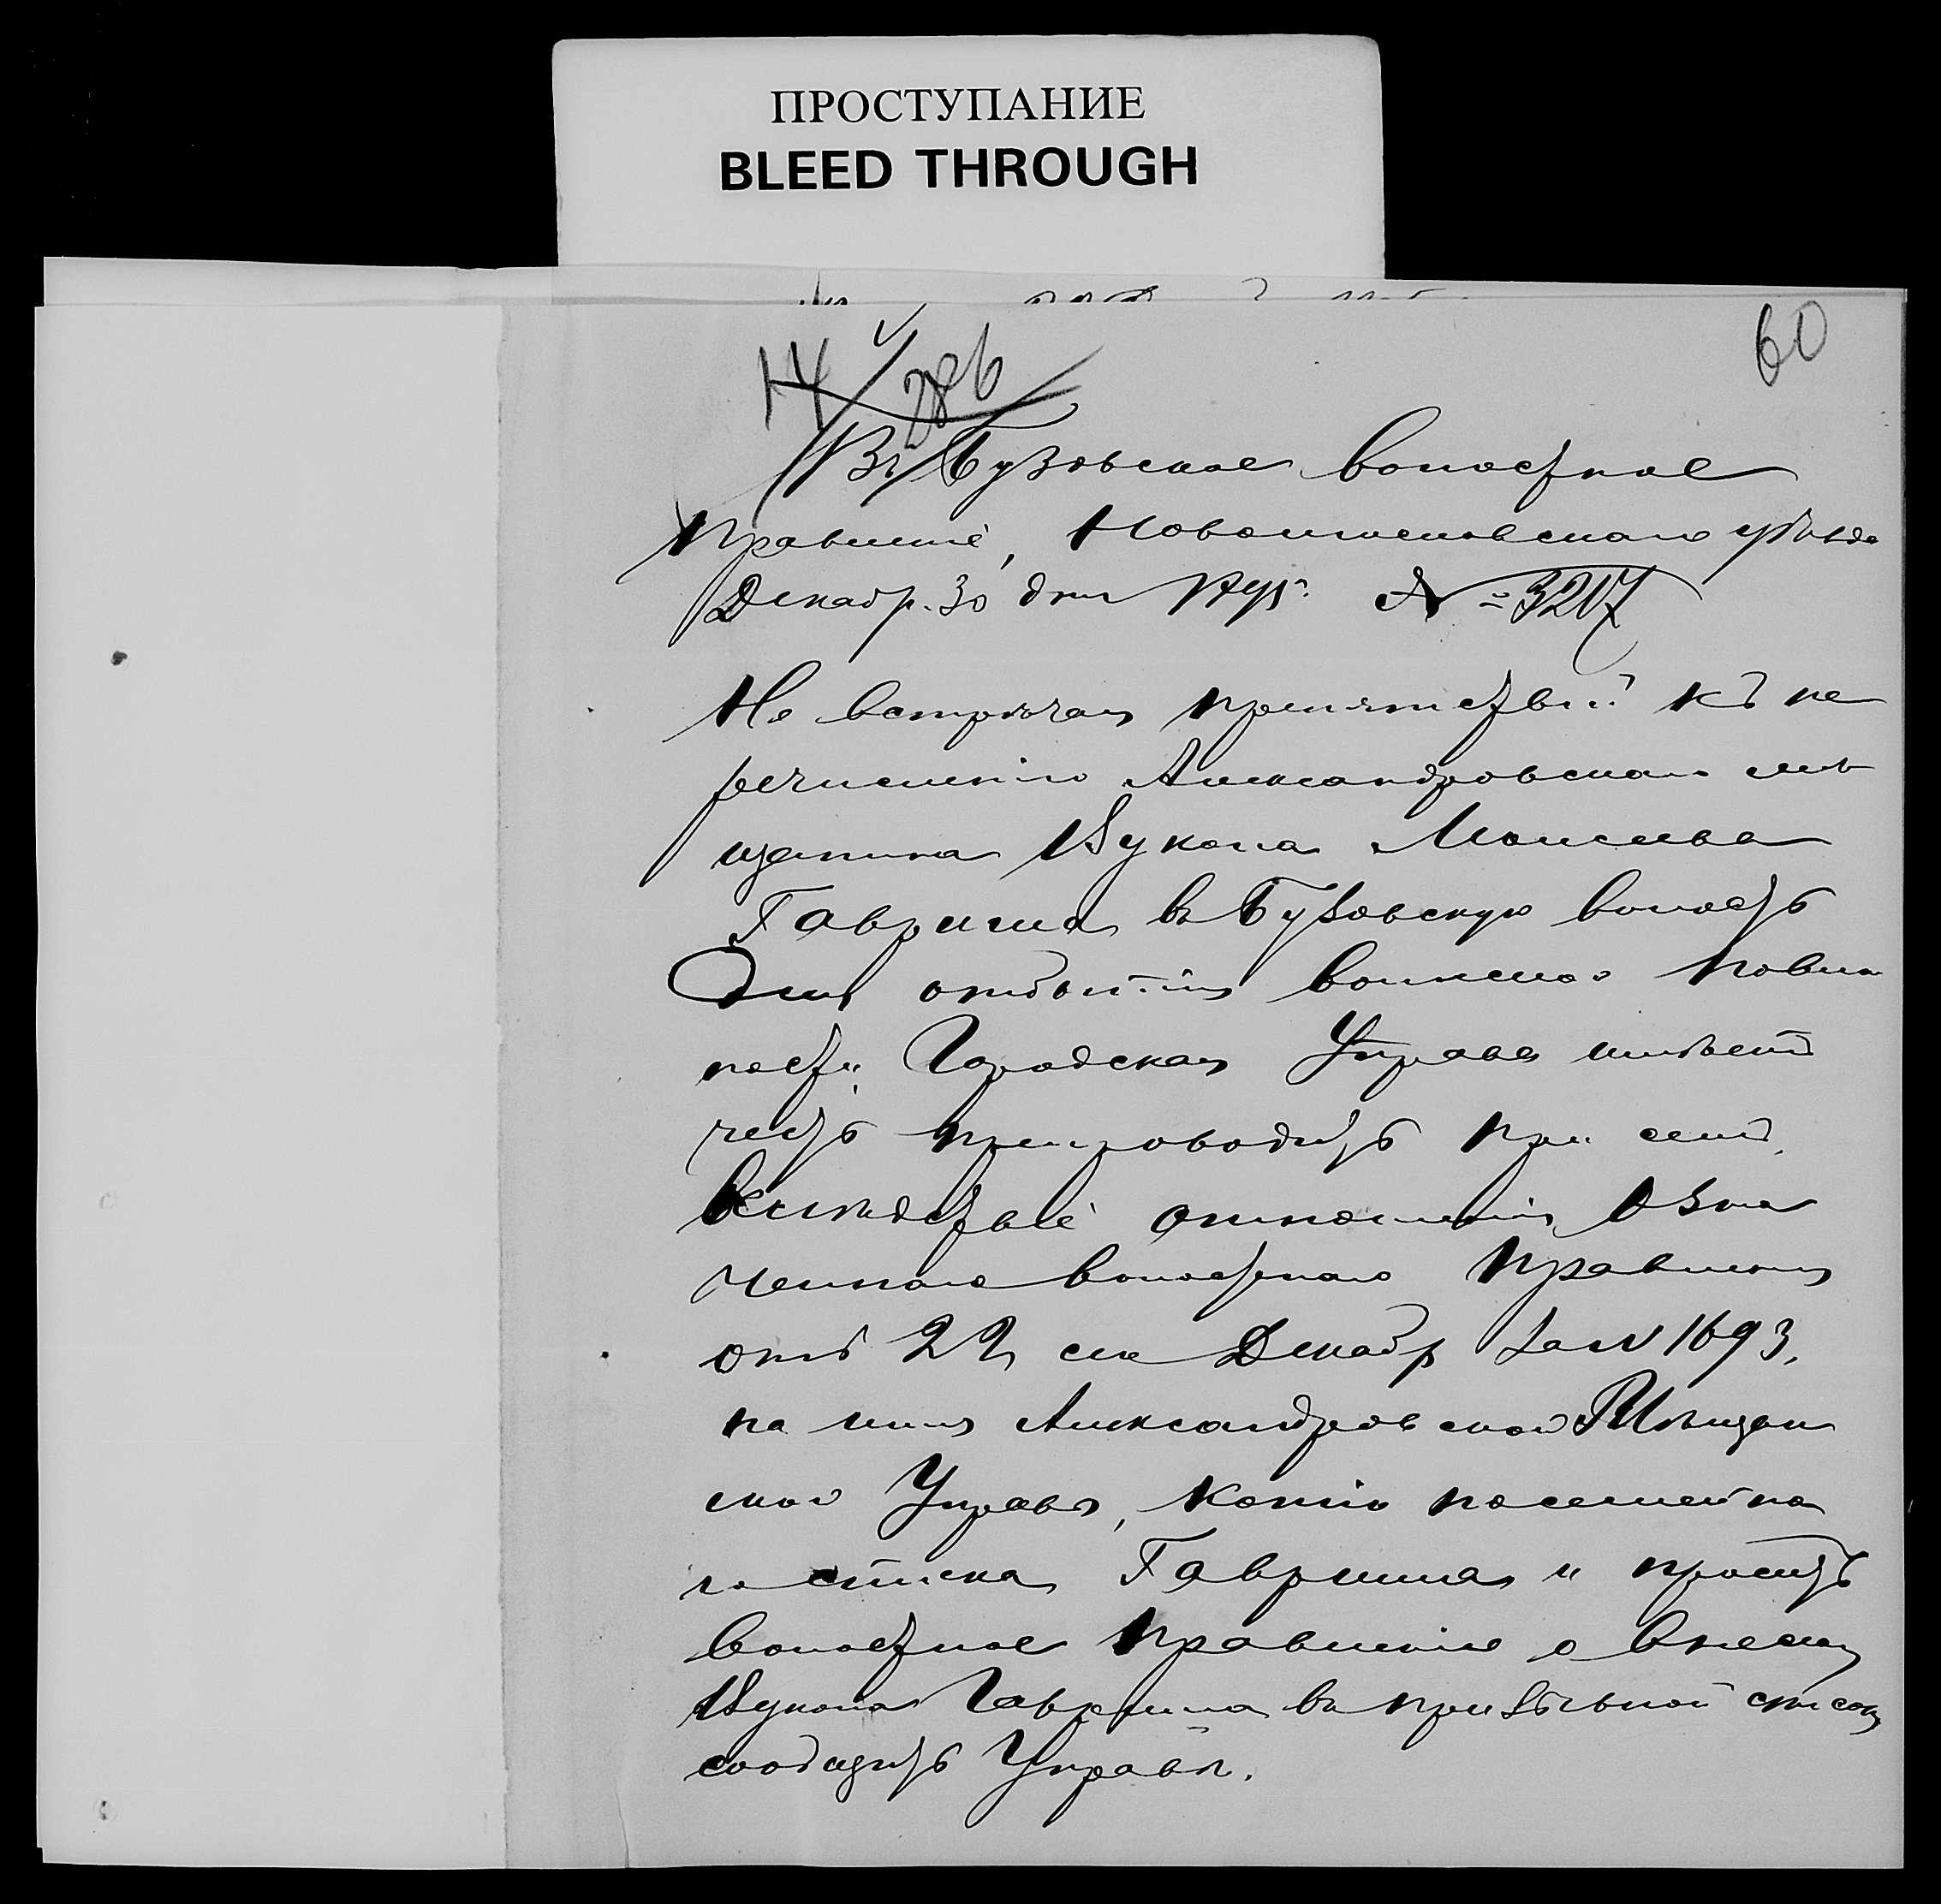 ПРОСТУПАНИЕ
BLEED THROUGH
60
14
286
Въ Бузовское волостное
Правленіе, Новомосковскаго уѣзда
Декабр. 30 дня № 3207
Не встрѣчая препятствій къ пе
речисленію Александровскаго мѣ
щанина Вукола Моисеева
Гавриша въ Бузовскую волость
для отбытія воинской повин
ности, Городская Управа имѣетъ
честь препроводить при семъ,
вслѣдствіе отношенія озна
ченнаго волостнаго Правленія
отъ 22 сего Декабр за № 1693,
на имя Александровской Мѣщан
ской Управы, копію посемейна
го списка Гавриша и просить
волостное Правленіе о внесеніи
Вукола Гавриша въ призывной списокъ
сообщить Управѣ.